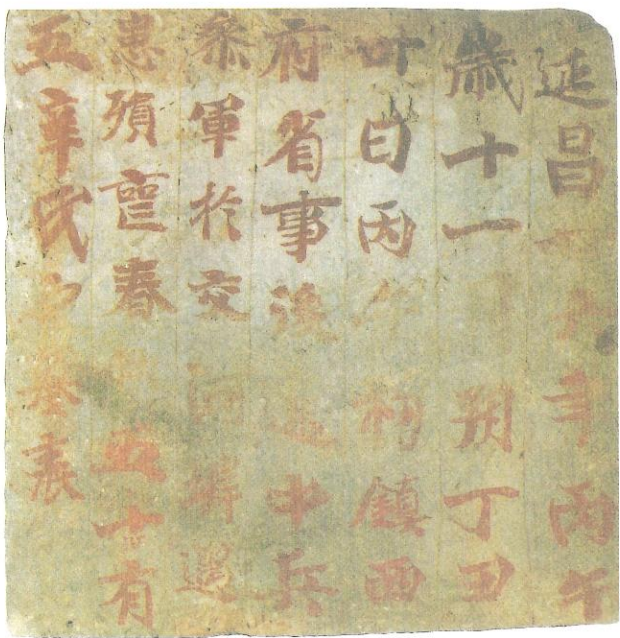 延昌六年丙午
歲十一朔丁丑
日丙午初鎮西
府省事後遷中兵
參軍於交河埒遇
患殞喪春五十有
五辛氏之墓表